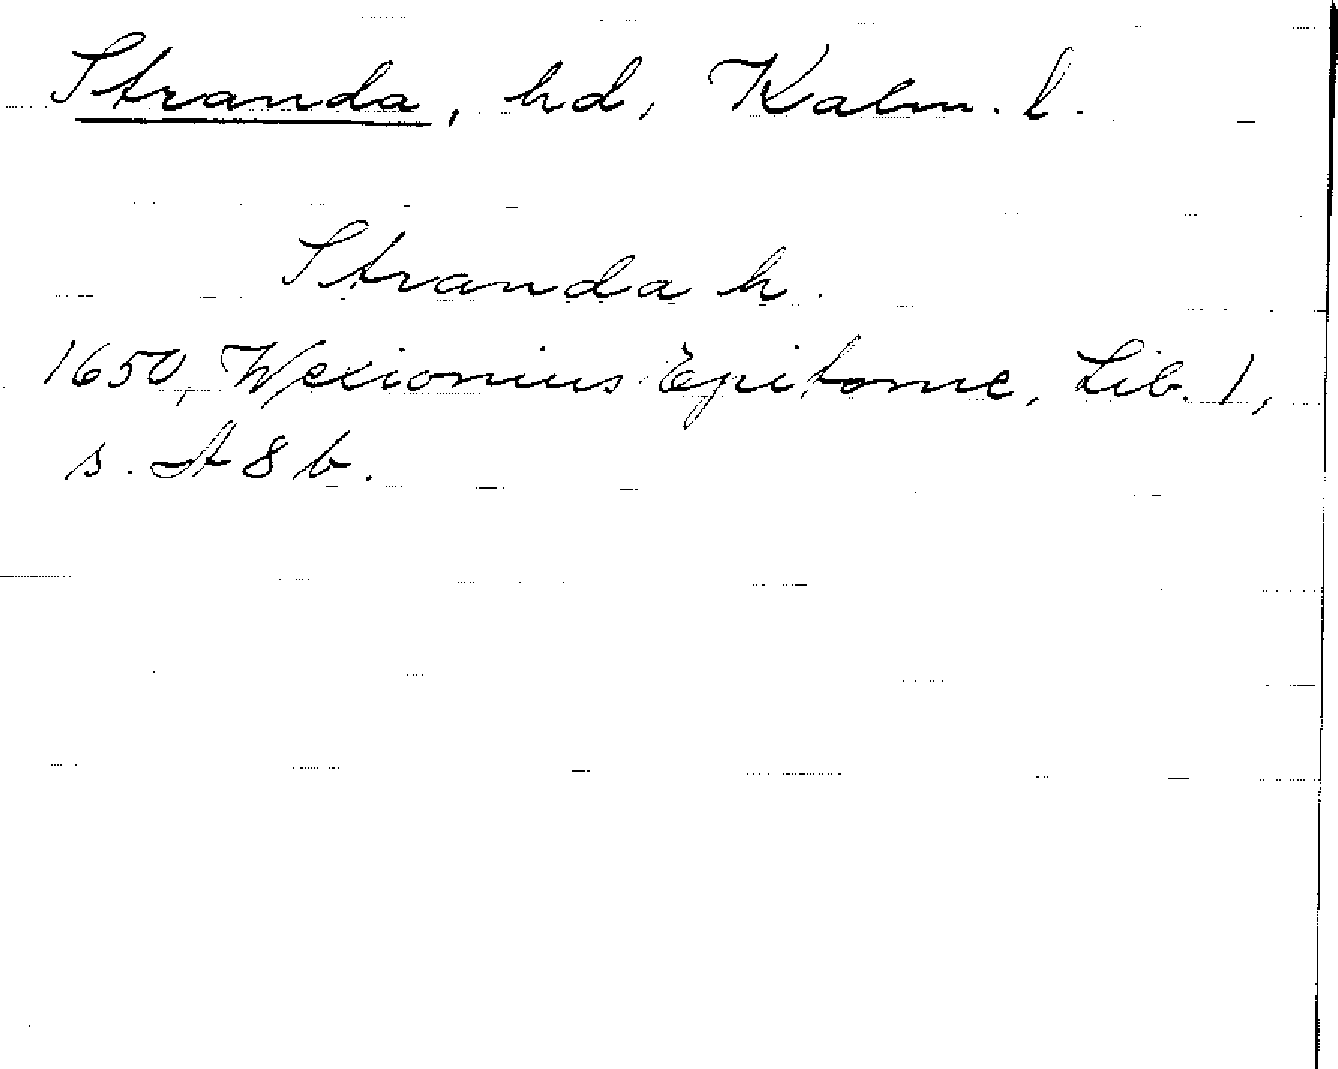 Stranda, hd, Kalm. l.
Stranda h.
1650, Wexionius Epitome, Lib. 1,
s. A 8 b.